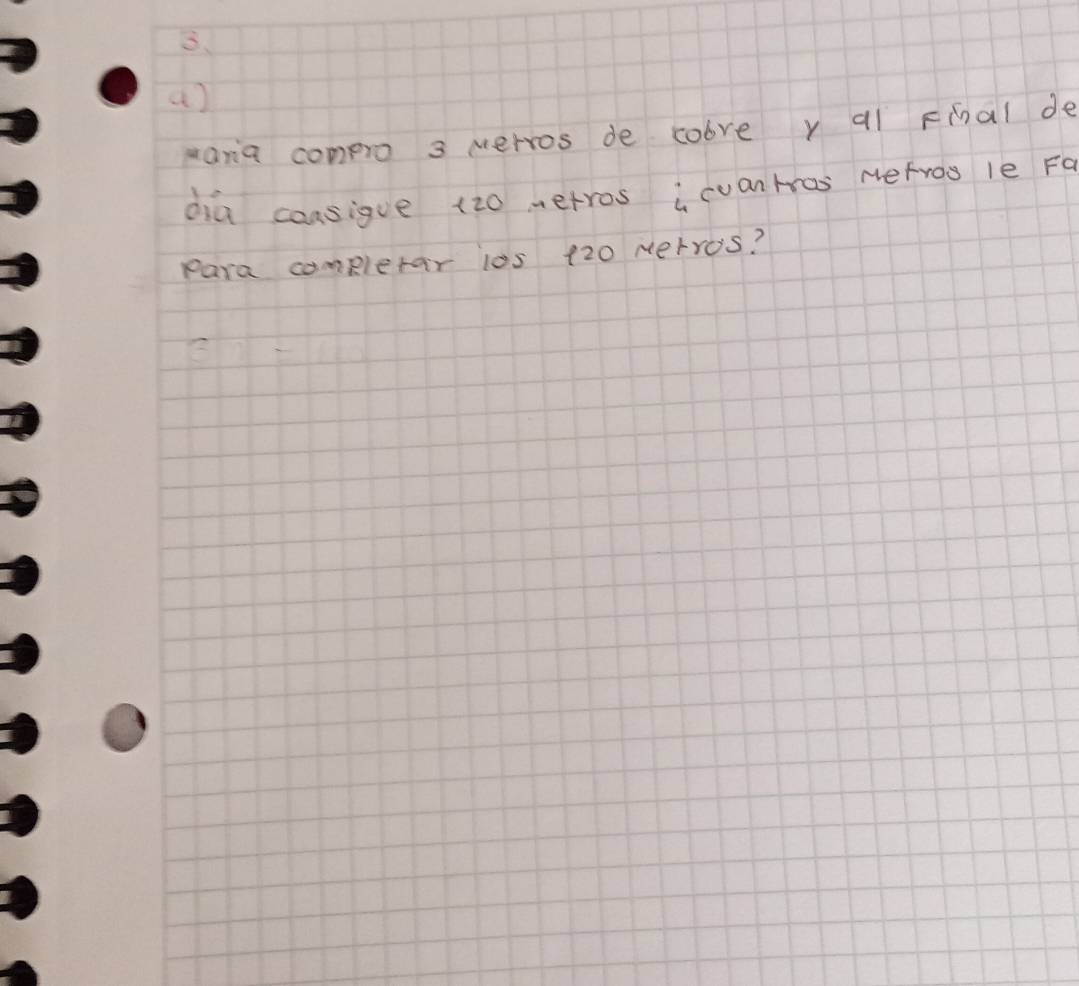 3.
a)
maria compro 3 metros de cobre y al final de
día consigue 120 metros ¿cuantros metros le Fa
para completar los 120 metros?